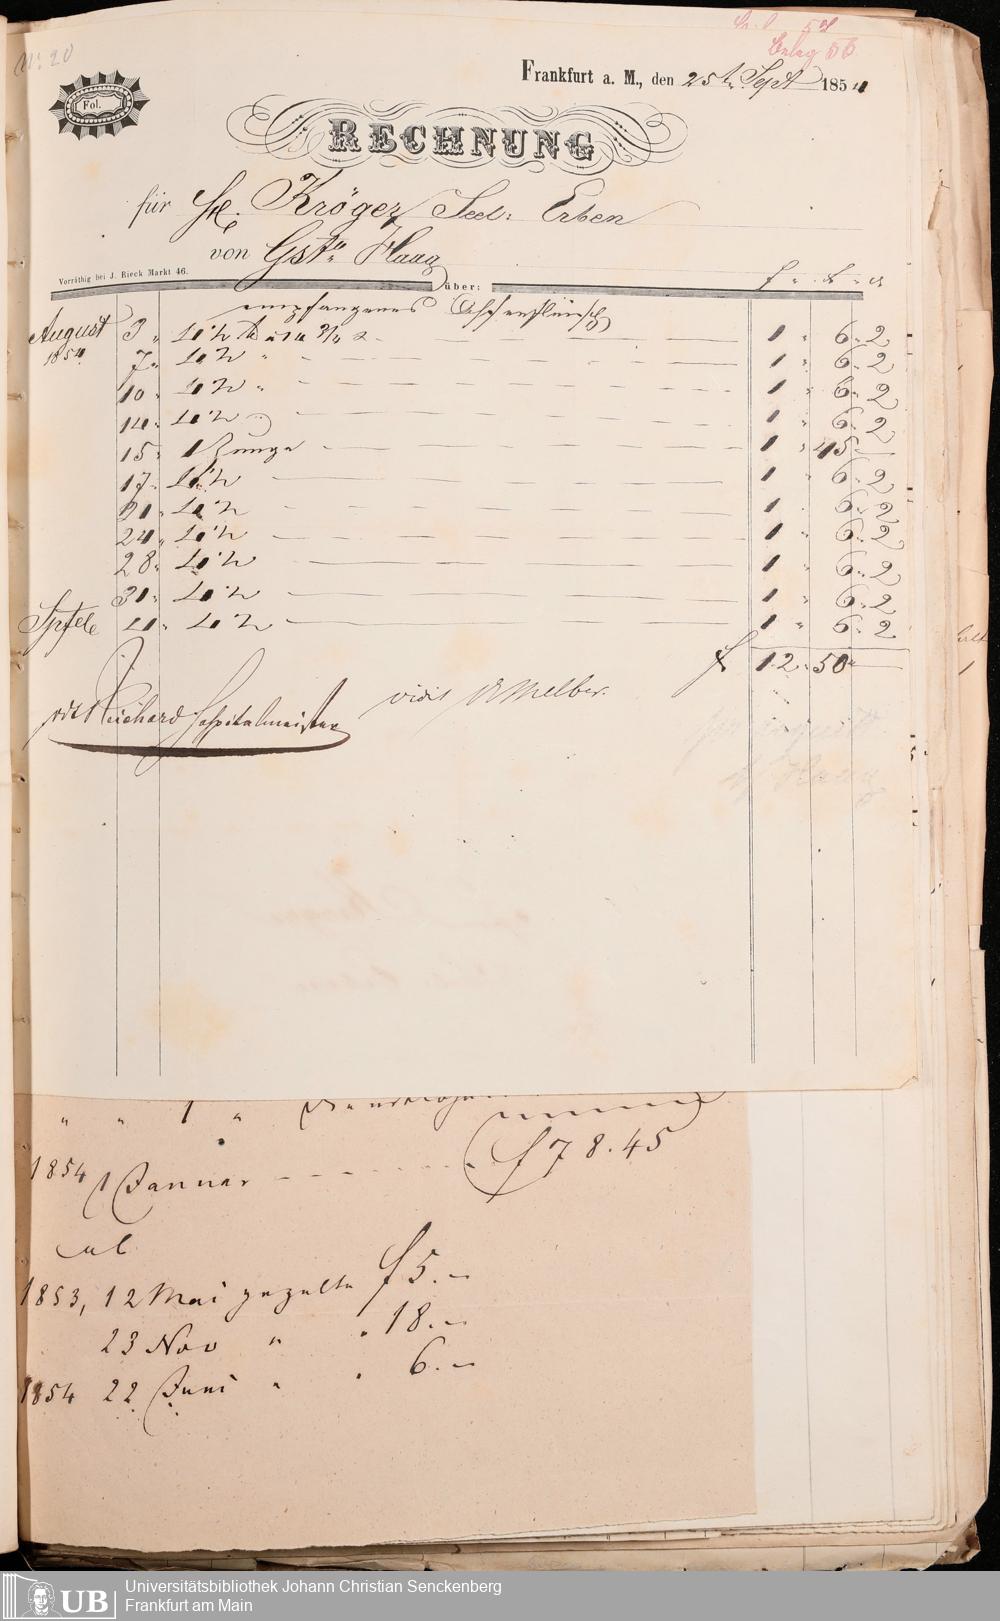 No 20
Beleg 56
Fol.
Frankfurt a. M., den 25t. Sept 1854
RECHNUNG
für Hr. Kröger Seel: Erben
von Gstn. Haag
Vorräthig bei J. Rieck Markt 46.
über:
empfangenes Ochsenfleisch
August 3 " 10 ½ 1 " 6 " 2
1854 7 " 10 ½ " 1 " 6 " 2
10 " 10 ½ " 1 " 6 " 2
14 " 10 ½ " 1 " 6 " 2
15 " 1 Zunge 1 " 45 " —
17 " 10 ½ 1 " 6 " 2
21 " 10 ½ 1 " 6 " 2
24 " 10 ½ 1 " 6 " 2
28 " 10 ½ 1 " 6 " 2
31 " 10 ½ 1 " 6 " 2
Septbr 11 " 10 ½ 1 " 6 " 2
f 12 " 50 " —
vdt Reichard Hospitalmeister
vidit Melber.
" " 1 "
1854 1 Januar f 78.45
ab
1853, 12 Mai gezalte f 5. –
23 Nov " " 18. –
1854 22 Juni " " 6. –
UB
Universitätsbibliothek Johann Christian Senckenberg
Frankfurt am Main